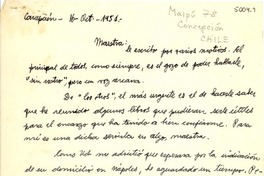 Concepción - 16-Oct-1952.
Maipú 78
Concepción
CHILE
Maestra:
le escribo por varios motivos. El
principal de todos, como siempre, es el gozo de poder hablarle,
"sin verter" pero en voz cercana.
De "los otros", el más urgente es el de hacerle saber
que he reunido algunos libros que pudieran serle útiles
para el encargo que ha tenido a bien confiarme. Para
mí es una dicha servirla en algo, maestra.
Como Ud. me advirtió que esperara por la indicación
de su domicilio en Nápoles, he aguardado un tiempo. Pe-